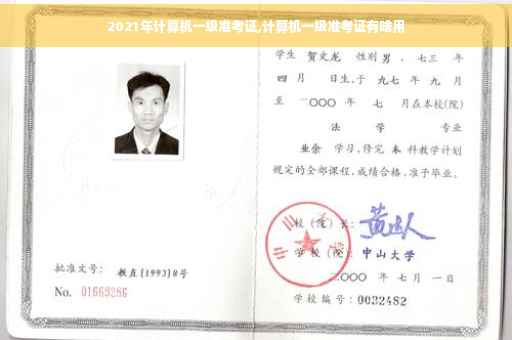 2021年计算机一级准考证,计算机一级准考证有啥用
学生 贺文龙 性别 男 、七三 年
四 月 日生,于 九七 年 九 月
至 二〇〇〇 年 七 月在本校(院)
法 学 专业
业余 学习,修完 本 科教学计划
规定的全部课程,成绩合格,准予毕业。
校(院)长:
学校(院): 中山大学
二〇〇〇 年 七 月 一 日
学校编号: 0032482
批准文号: 教直(1993)8号
No. 01669286